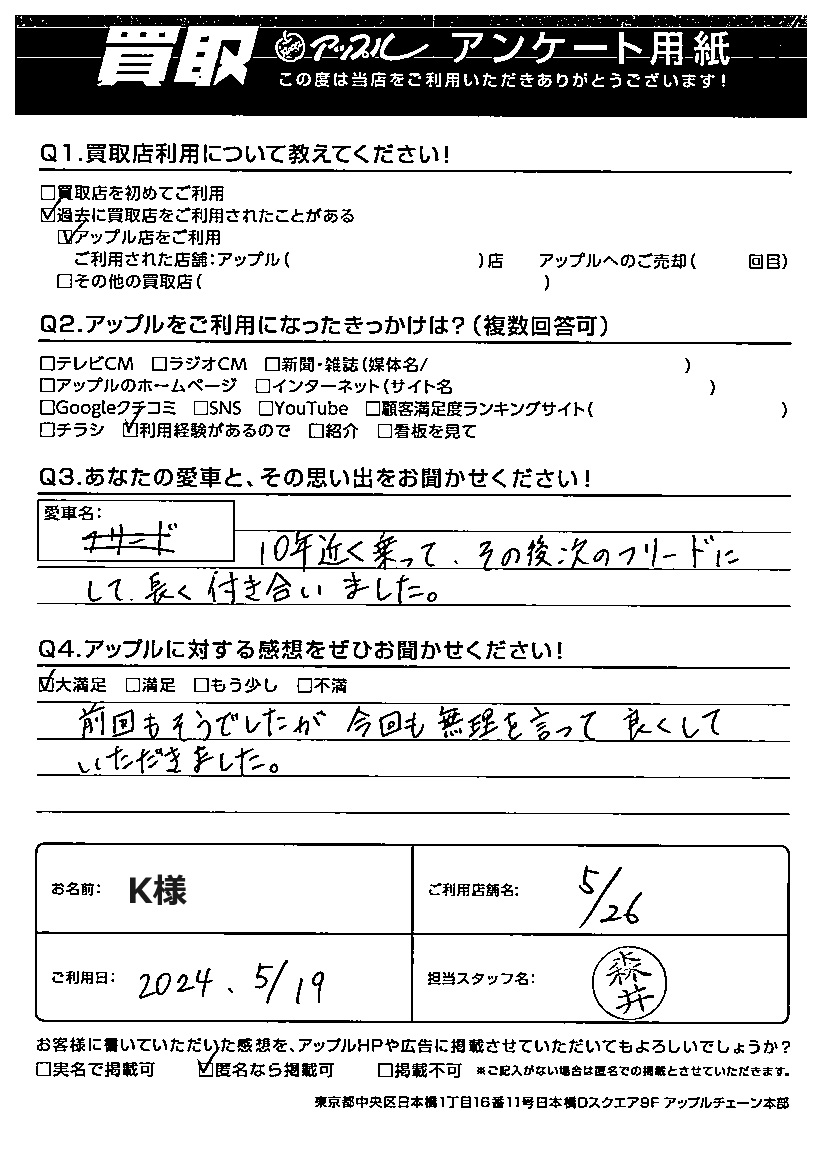 買取 アップル アンケート用紙
この度は当店をご利用いただきありがとうございます!
Q1.買取店利用について教えてください!
□買取店を初めてご利用
☑過去に買取店をご利用されたことがある
☑アップル店をご利用
ご利用された店舗:アップル( )店 アップルへのご売却( 回目)
□その他の買取店( )
Q2.アップルをご利用になったきっかけは?(複数回答可)
□テレビCM □ラジオCM □新聞・雑誌(媒体名/ )
□アップルのホームページ □インターネット(サイト名 )
□Googleクチコミ □SNS □YouTube □顧客満足度ランキングサイト( )
□チラシ ☑利用経験があるので □紹介 □看板を見て
Q3.あなたの愛車と、その思い出をお聞かせください!
愛車名:
フリード 10年近く乗って、その後次のフリードに
して、長く付き合いました。
Q4.アップルに対する感想をぜひお聞かせください!
☑大満足 □満足 □もう少し □不満
前回もそうでしたが 今回も無理を言って 良くして
いただきました。
お名前: K様 ご利用店舗名: 5/26
ご利用日: 2024、5/19 担当スタッフ名: 森井
お客様に書いていただいた感想を、アップルHPや広告に掲載させていただいてもよろしいでしょうか?
□実名で掲載可 ☑匿名なら掲載可 □掲載不可 ※ご記入がない場合は匿名での掲載とさせていただきます。
東京都中央区日本橋1丁目16番11号日本橋Dスクエア9F アップルチェーン本部